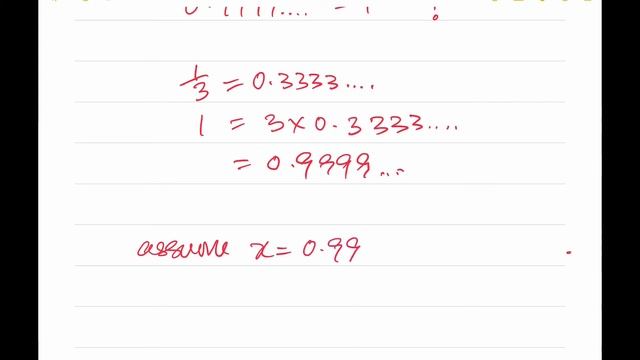 1/3 = 0.3333....
1 = 3 × 0.3333....
= 0.9999...
assume x = 0.99